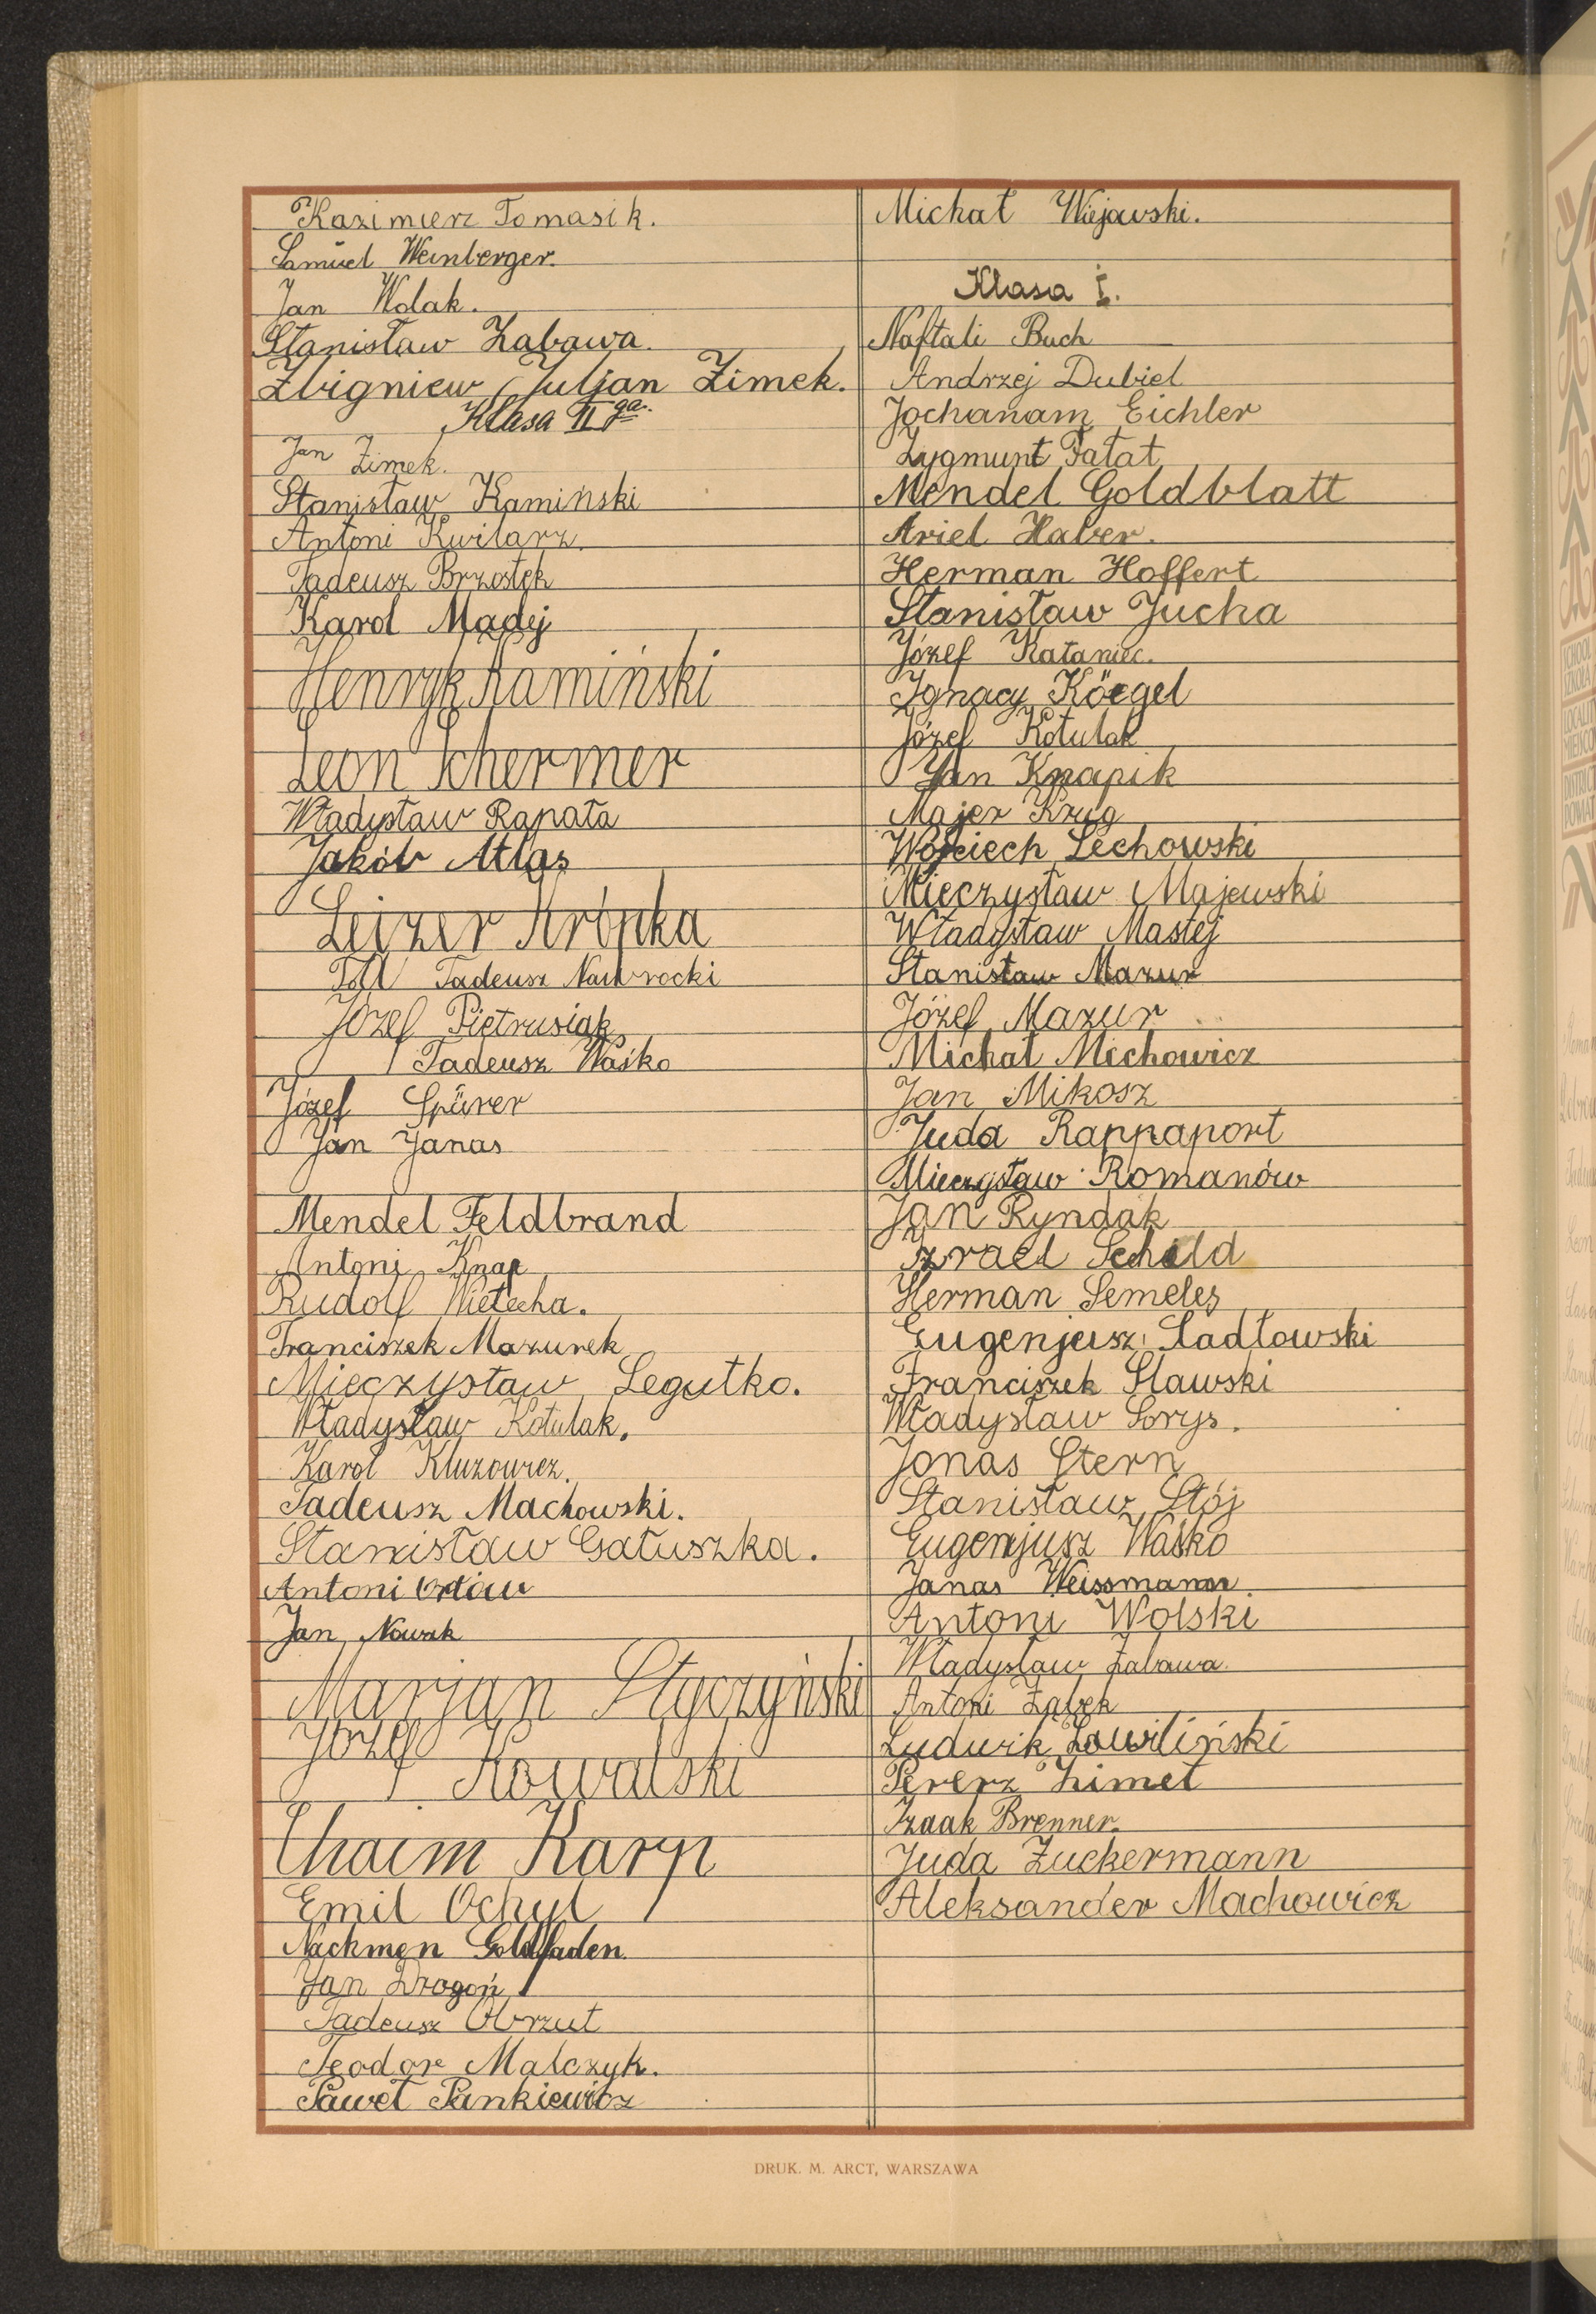 Kazimierz Tomasik.
Samuel Weinberger.
Jan Wolak.
Stanisław Zabawa.
Zbigniew Juljan Zimek.
Klasa II ga.
Jan Zimek.
Stanisław Kamiński
Antoni Kwilarz.
Tadeusz Brzostek
Karol Madej
Henryk Kamiński
Leon Schermer
Władysław Rapała
Jakób Atlas
Leizer Krópka
Tadeusz Nawrocki
Józef Pietrusiak
Tadeusz Waśko
Józef Spürer
Jan Janas
Mendel Feldbrand
Antoni Knap
Rudolf Wietecha.
Franciszek Mazurek
Mieczysław Legutko.
Władysław Kotulak.
Karol Kluzowicz.
Tadeusz Machowski.
Stanisław Gałuszka.
Antoni Ortów
Jan Nowak
Marjan Styczyński
Józef
Kowalski
Chaim Karp
Emil Ochył
Nachmen Goldfaden
Jan Drogoń
Tadeusz Obrzut
Teodor Malczyk.
Paweł Pankiewicz
Michał Wiejowski.
Klasa I.
Naftali Buch
Andrzej Dubiel
Jochanam Eichler
Zygmunt Fałat
Mendel Goldblatt
Ariel Haber.
Herman Hoffert
Stanisław Jucha
Józef Kataniec.
Ignacy Köegel
Józef Kotulak
Jan Knapik
Majer Krug
Wojciech Lechowski
Mieczysław Majewski
Władysław Mastej
Stanisław Mazur
Józef Mazur
Michał Michowicz
Jan Mikosz
Juda Rappaport
Mieczysław Romanów
Jan Ryndak
Izrael Schild
Herman Semeles
Eugenjusz Sadłowski
Franciszek Sławski
Władysław Sorys.
Jonas Stern
Stanisław Stój
Eugenjusz Waśko
Janas Weissmann.
Antoni Wolski
Władysław Zabawa.
Antoni Ząbek
Ludwik Zawiliński
Pererz Zimet
Izaak Brenner.
Juda Zuckermann
Aleksander Machowicz
DRUK. M. ARCT, WARSZAWA